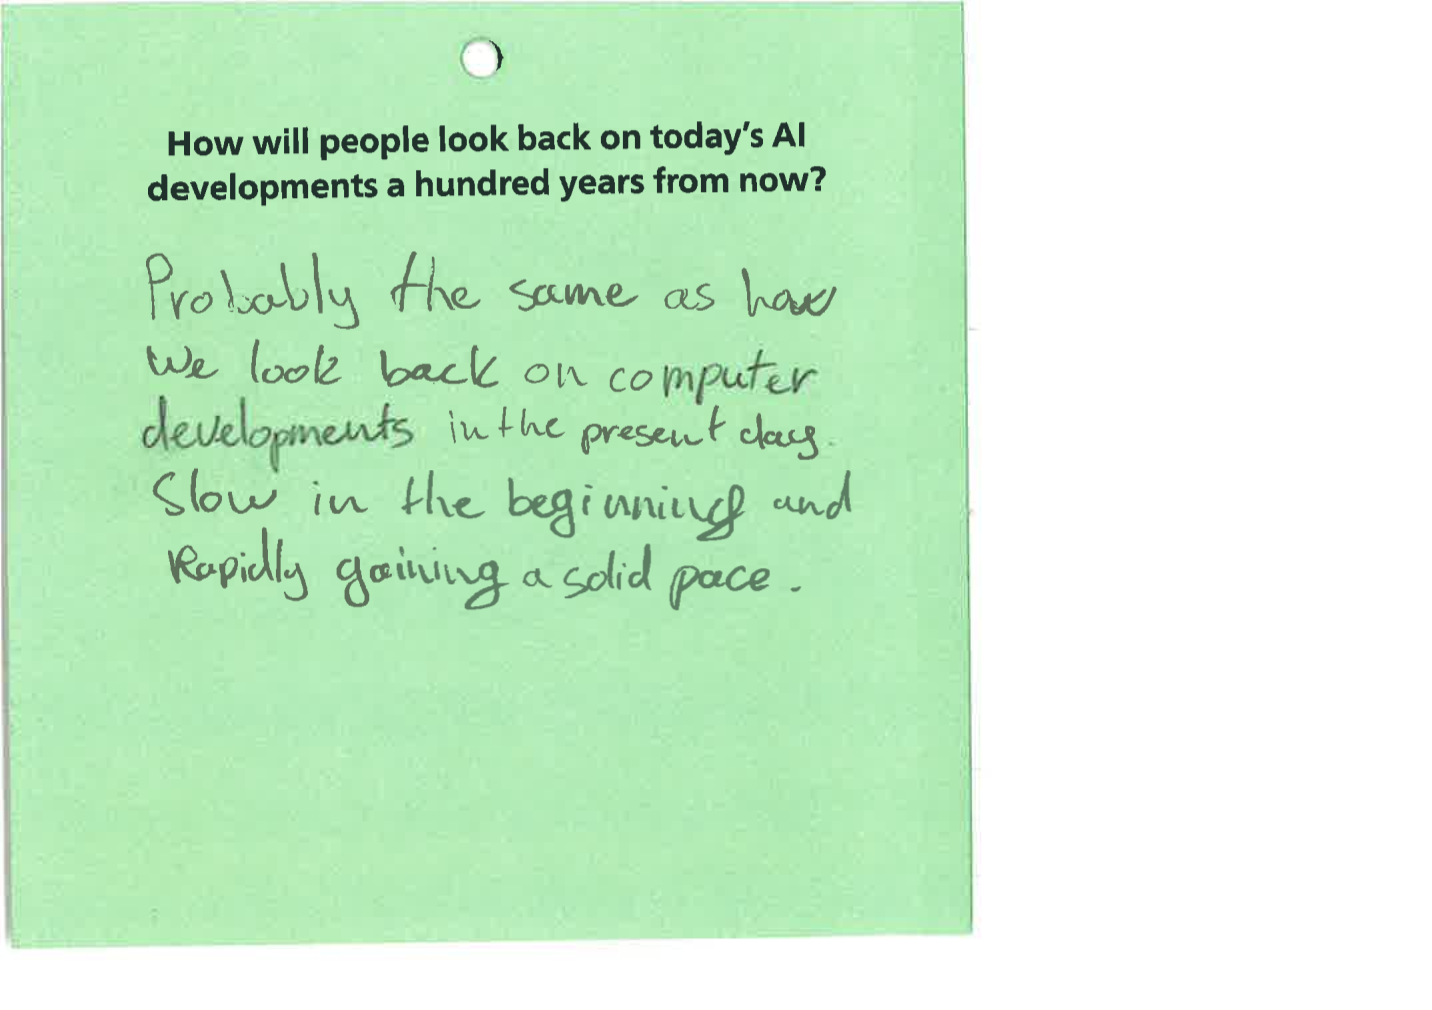 How will people look back on today's AI
developments a hundred years from now?
Probably the same as how
we look back on computer
developments in the present day.
Slow in the beginning and
Rapidly gaining a solid pace.